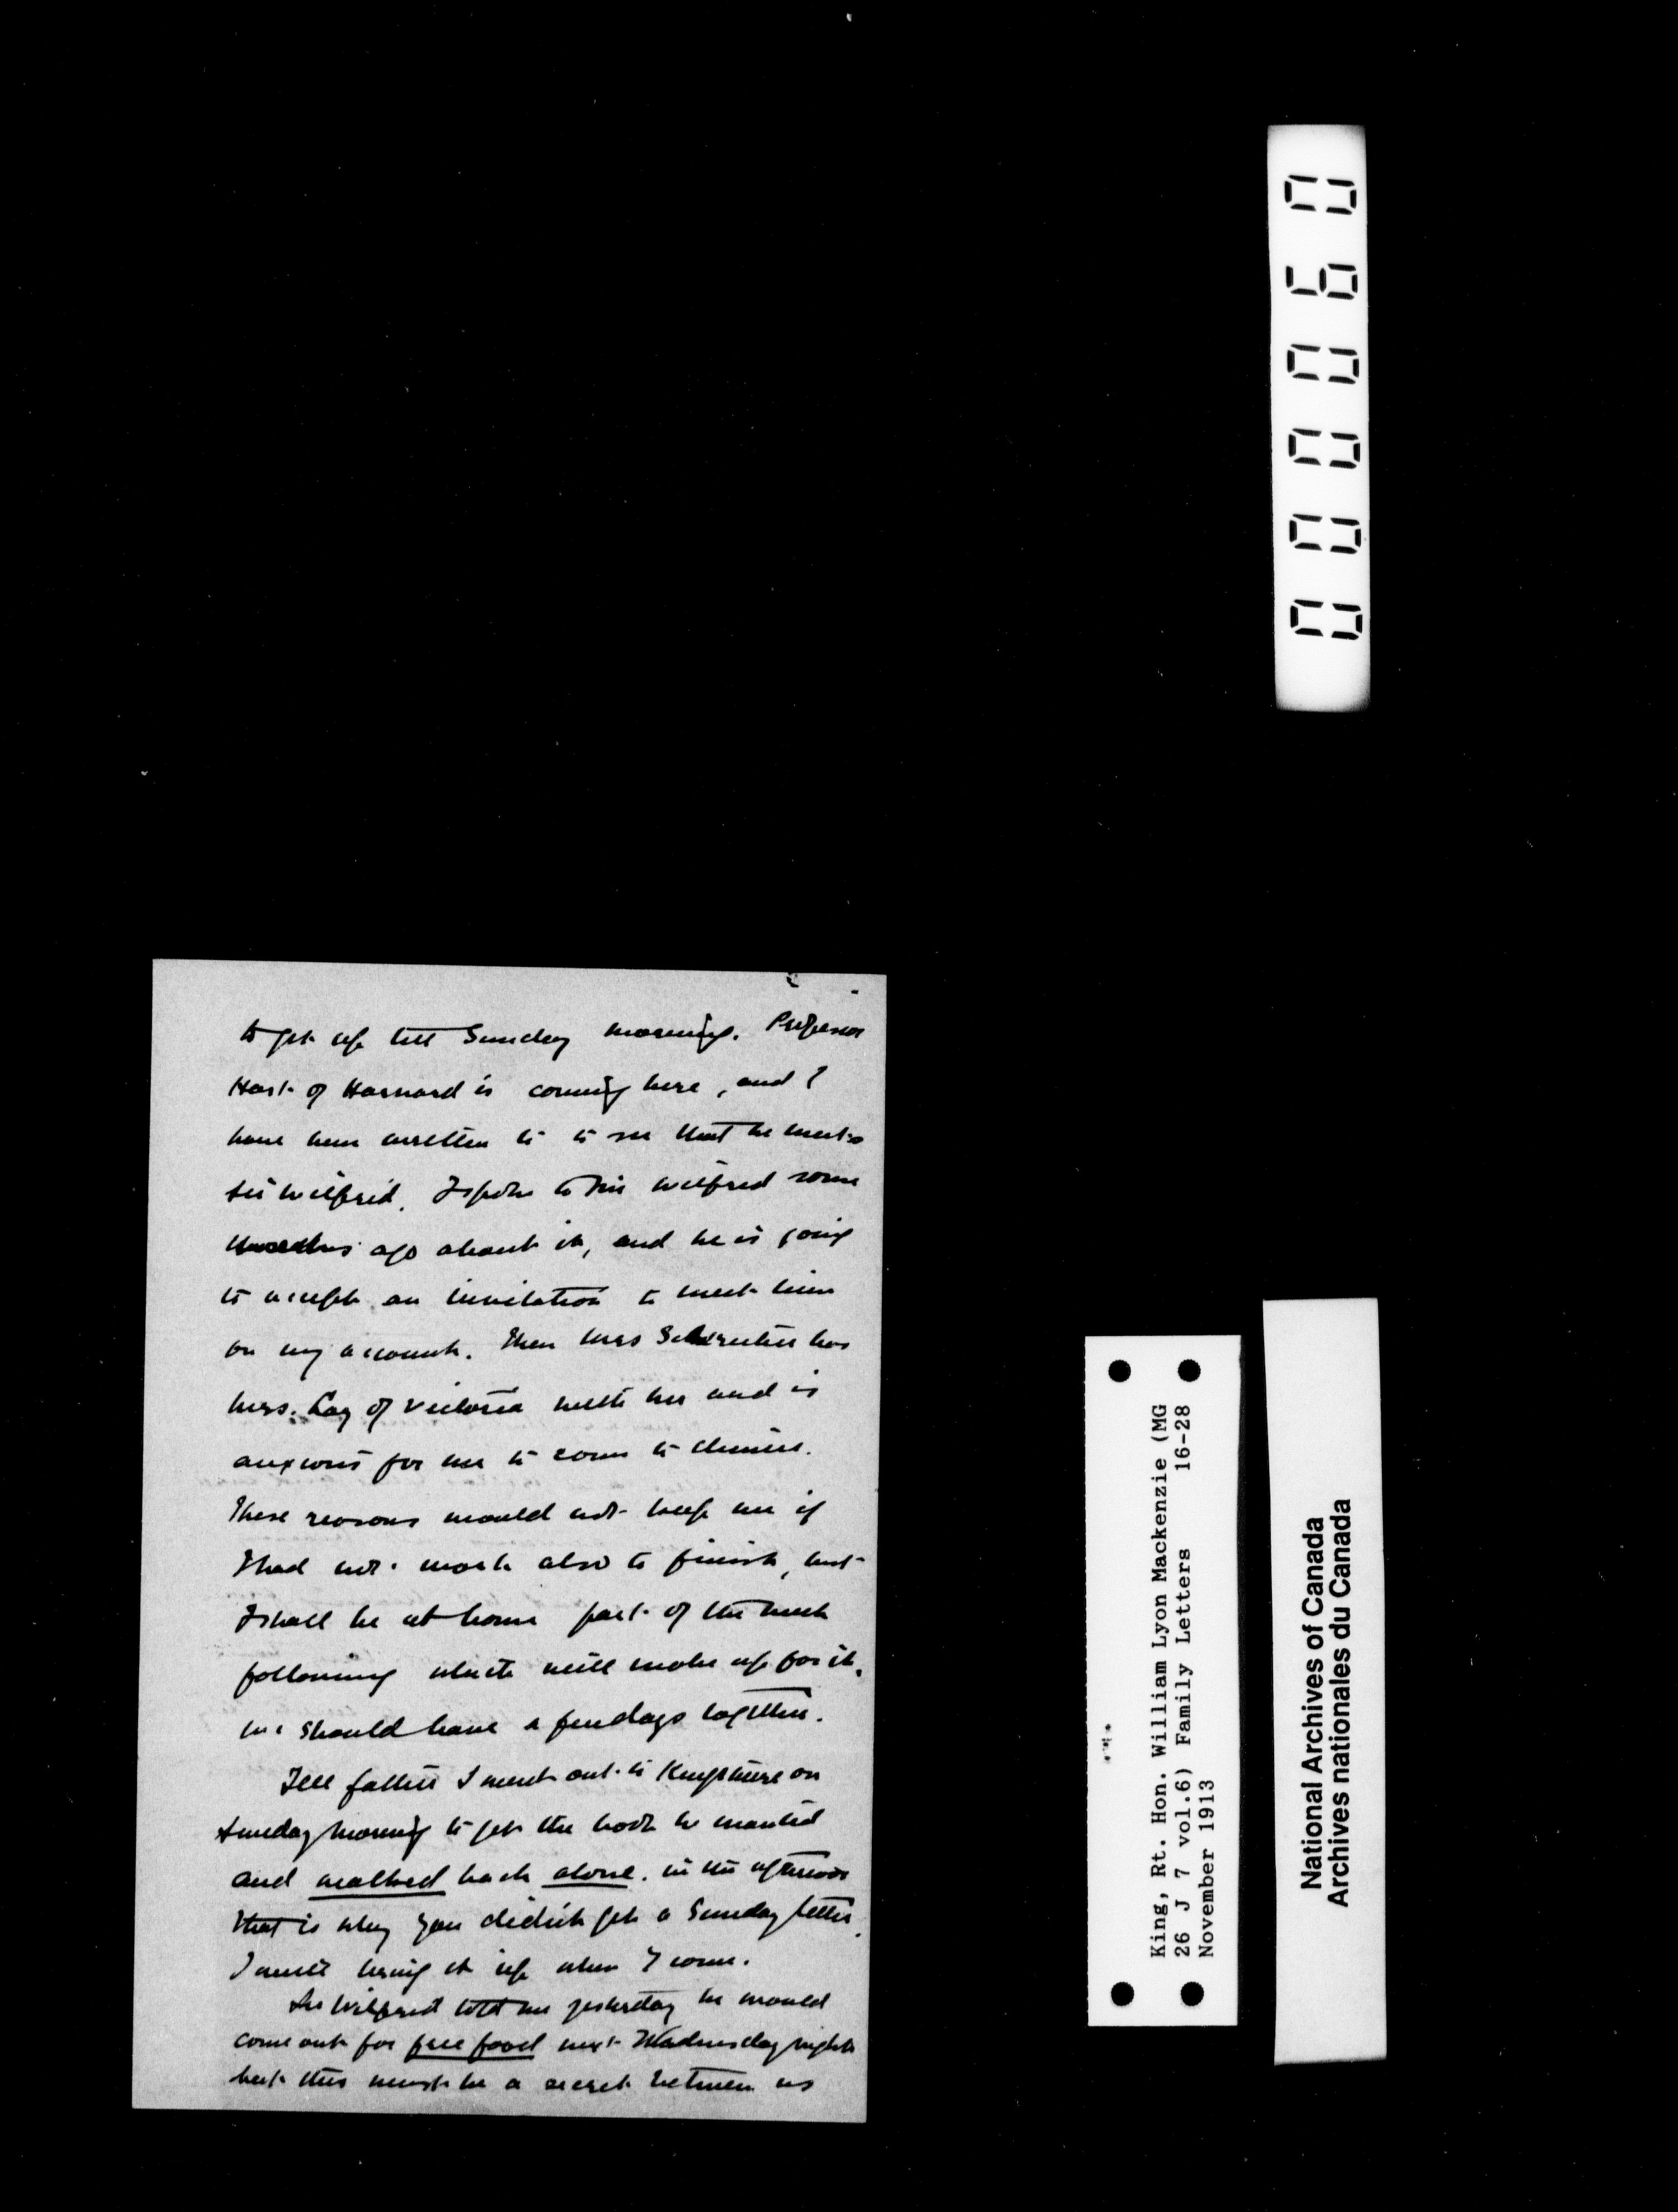 to get up till Sunday morning. Professor
Hart of Harvard is coming here, and I
have been written to to see that he meets
Sir Wilfrid. I spoke to Sir Wilfred some
months ago about it, and he is going
to accept an invitation to meet him
on my account. Then Mrs has
Mrs. Lay of Victoria with her and is
anxious for me to come to dinner.
These reasons would not keep me if
I had not work also to finish, but
I shall be at home part of the week
following which will make up for it.
We should have a few days together.
Tell father I went out to Kingsmere on
Sunday morning to get the book he wanted
and walked back alone. in the afternoon
that is why you didn't get a Sunday letter.
I will bring it up when I come.
Sir Wilfrid told me yesterday he would
come out for free food next Wednesday night
but this must be a secret between us
000060
King, Rt. Hon. William Lyon Mackenzie (MG
26 J 7 vol.6) Family Letters 16-28
November 1913
National Archives of Canada
Archives nationales du Canada